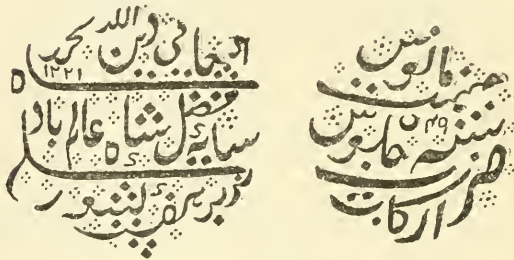 حامی دین الله محمد
۱۲۲۱
فضل
سایه شاه عالم باد
زد بر هفت کشور
مانوس
میمنت
سنه جلوس
ضرب
ارکات